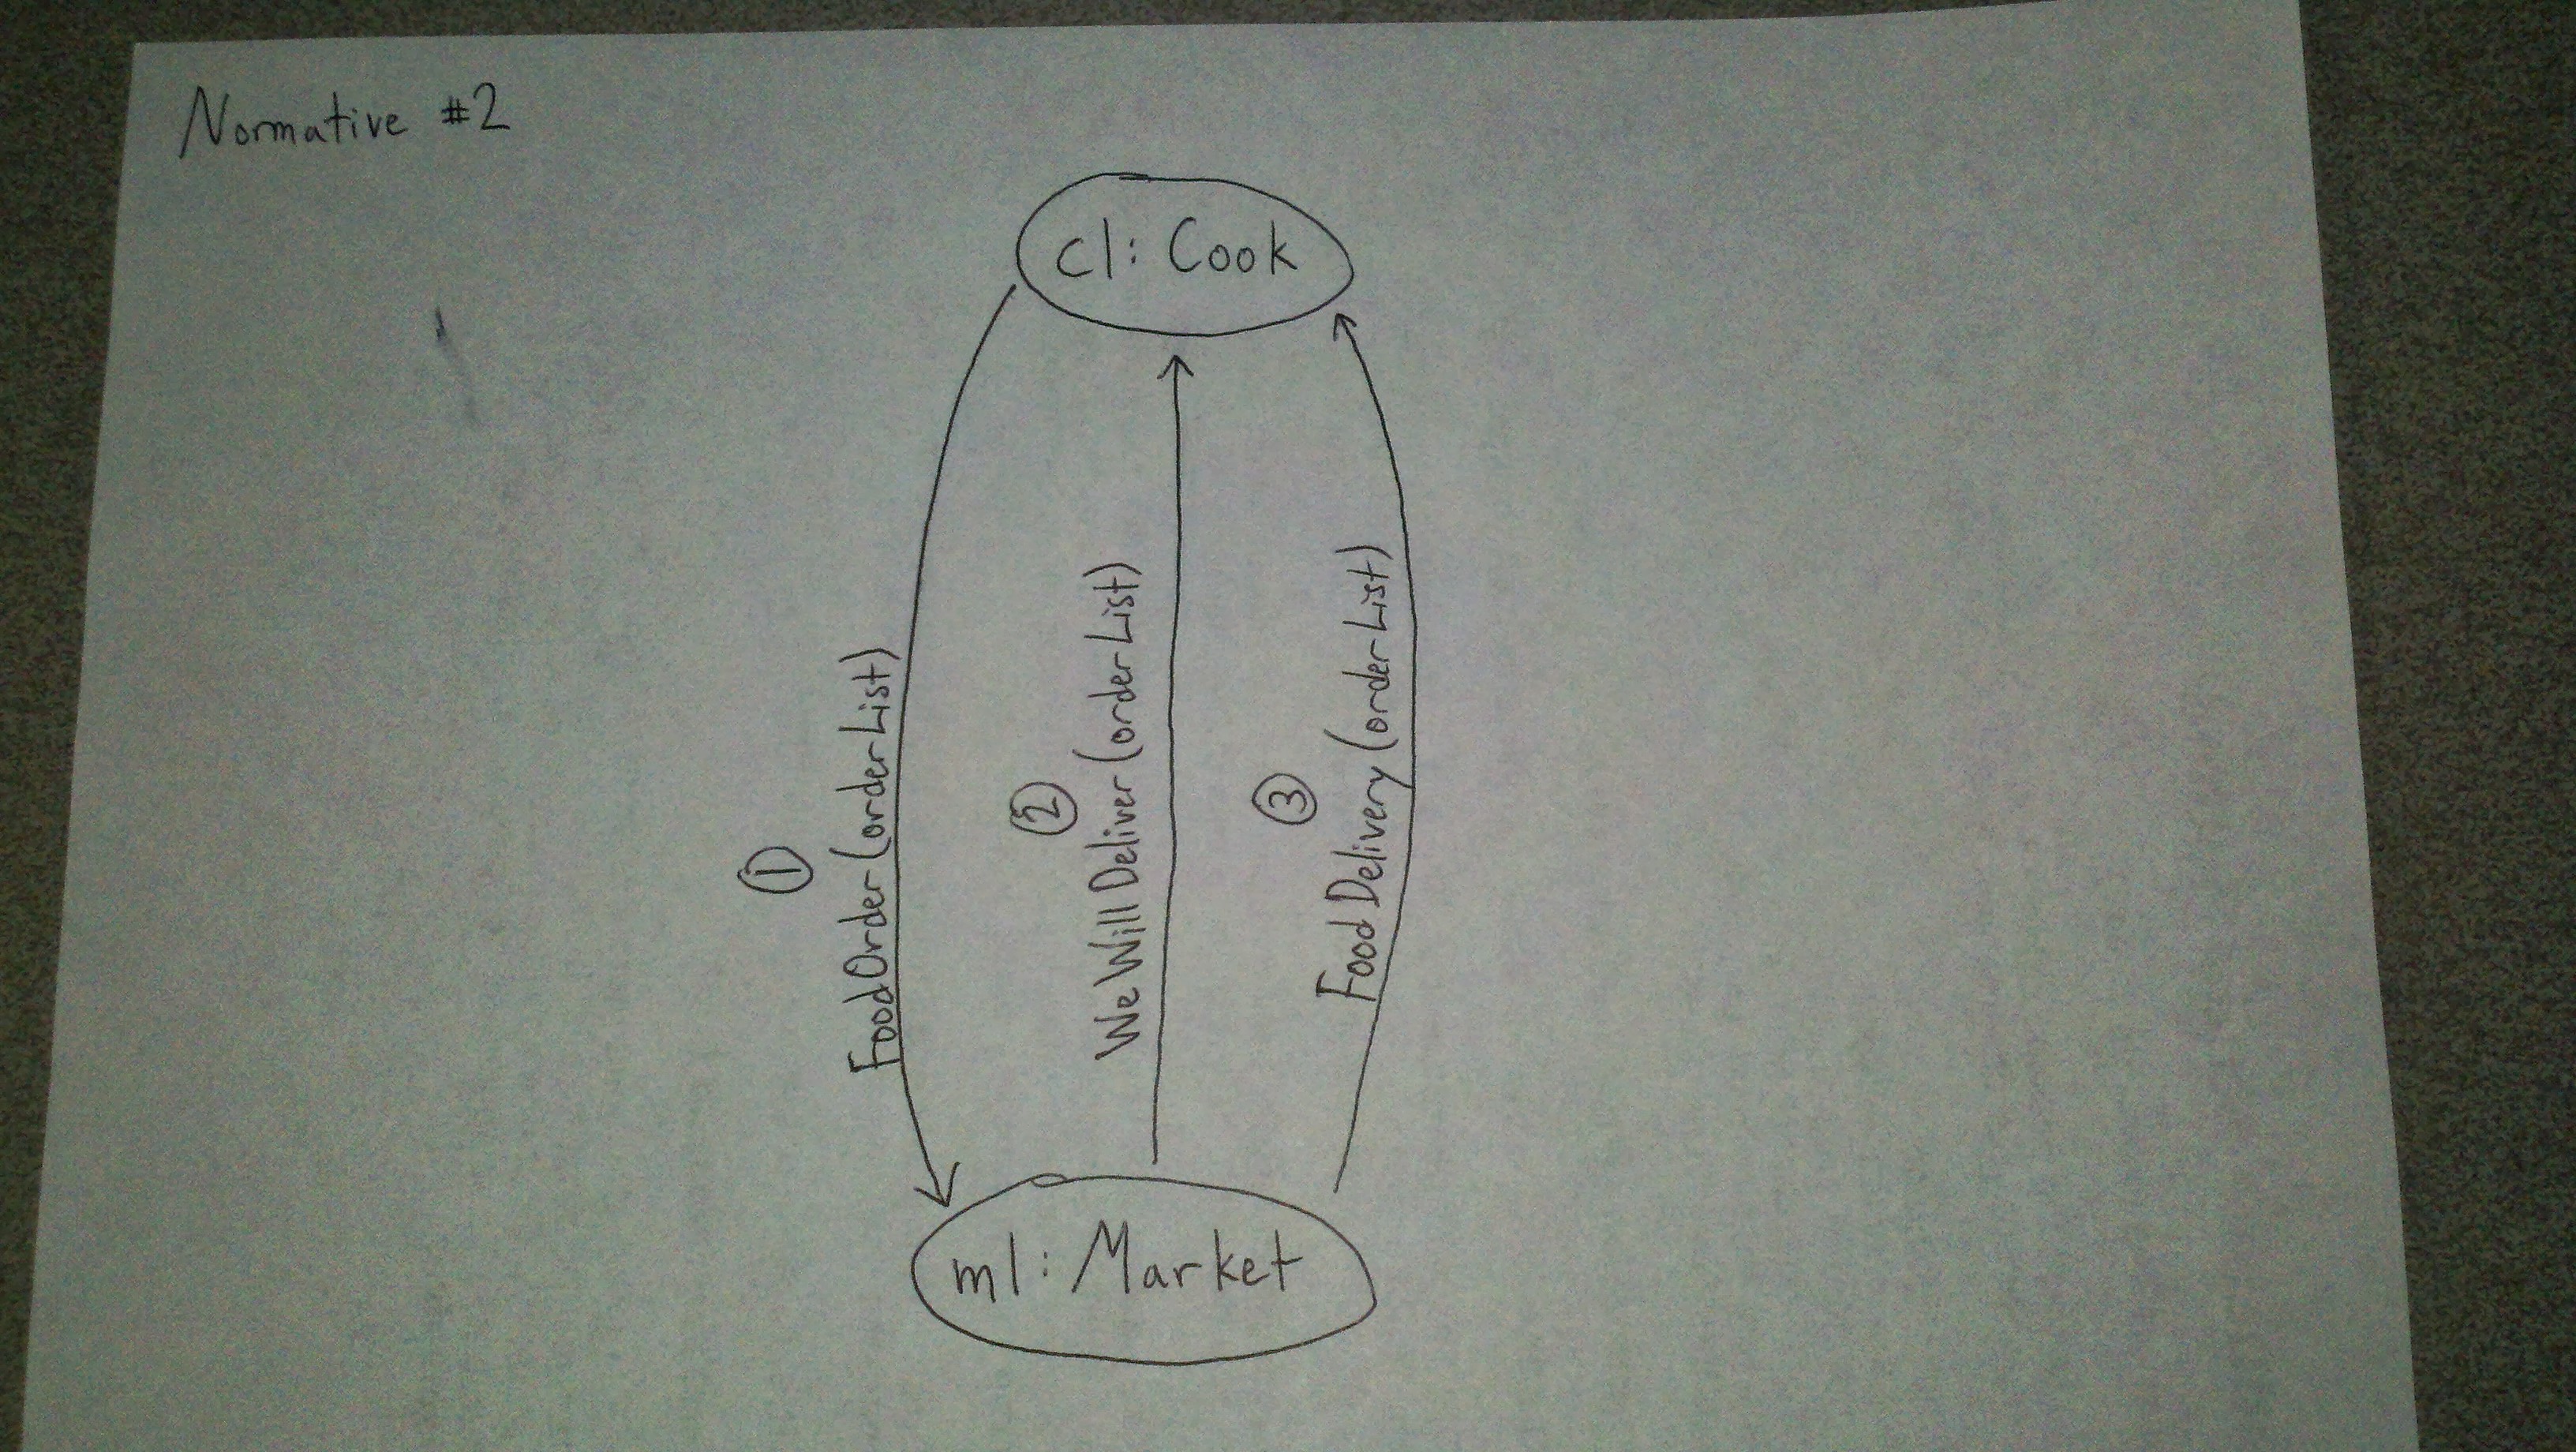 Normative #2
c1: Cook
①
FoodOrder (orderList)
②
We Will Deliver (orderList)
③
Food Delivery (orderList)
m1: Market